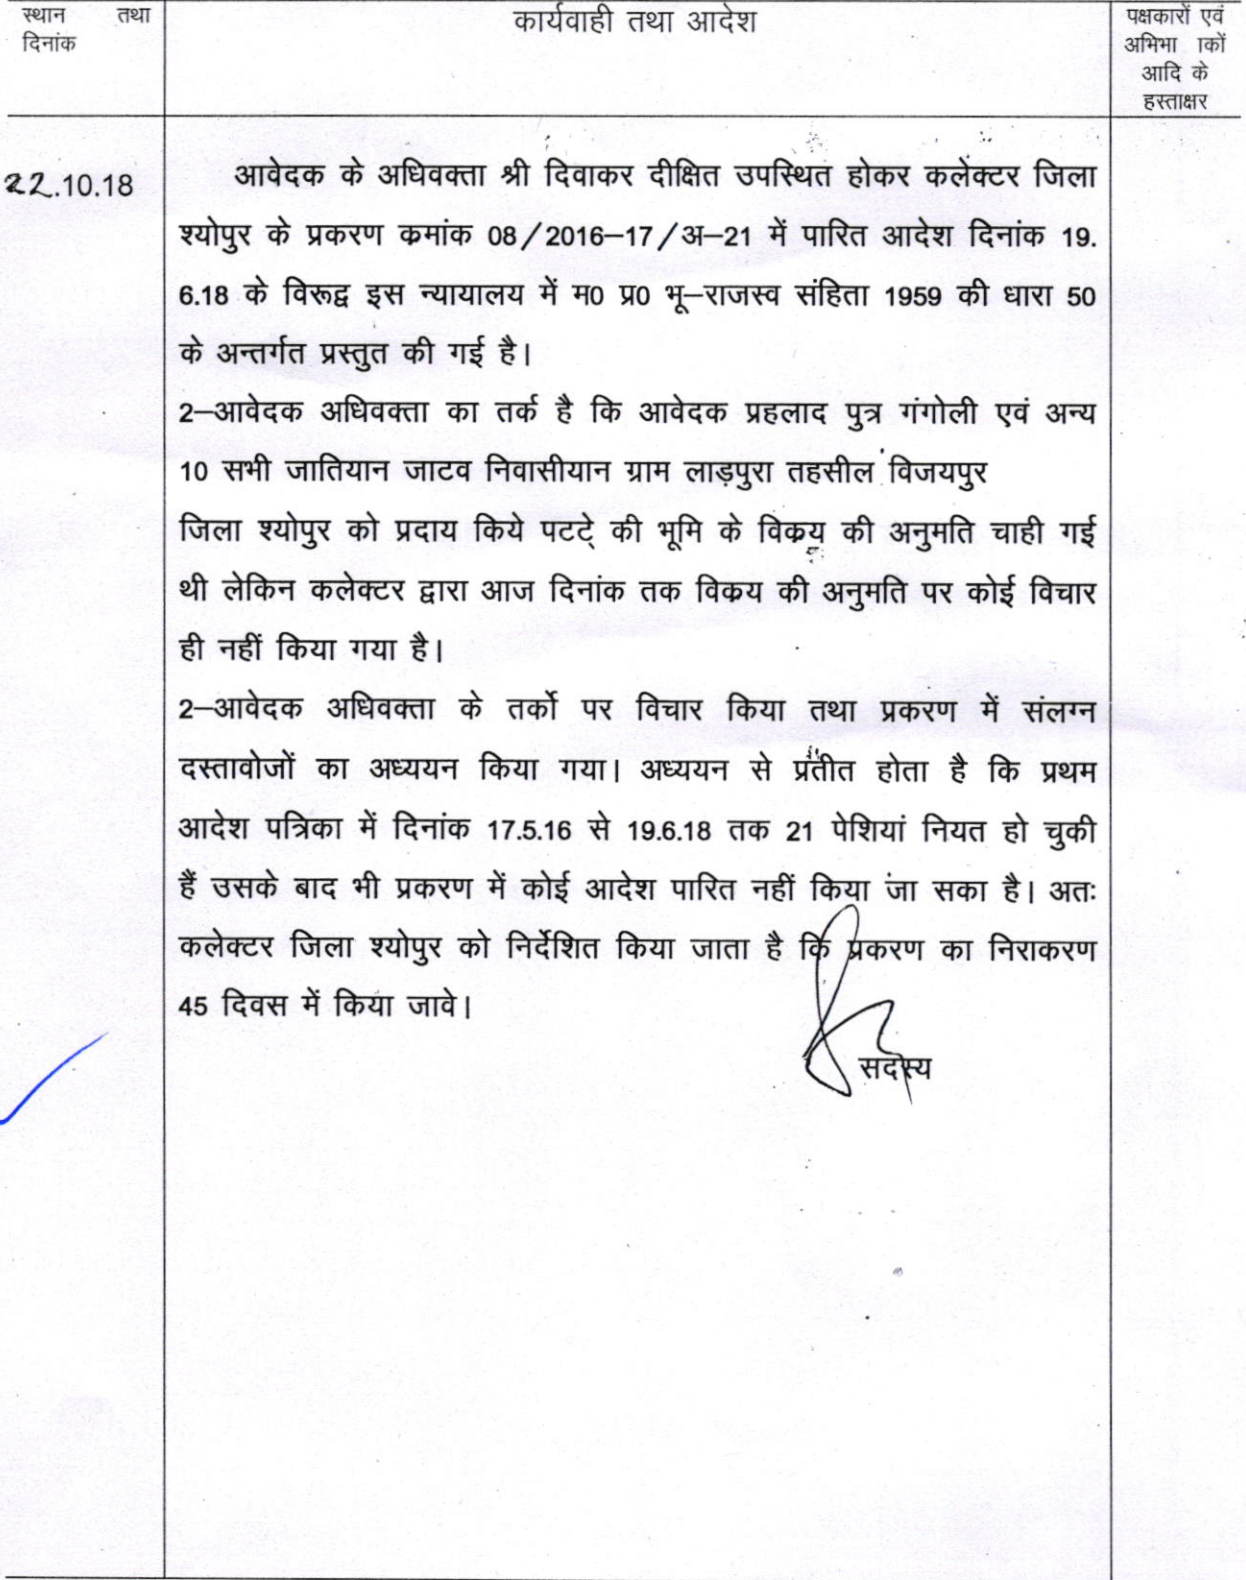 स्थान तथा
दिनांक
कार्यवाही तथा आदेश
पक्षकारों एवं
अभिभा  ाकों
आदि के
हस्ताक्षर
22.10.18
आवेदक के अधिवक्ता श्री दिवाकर दीक्षित उपस्थित होकर कलेक्टर जिला
श्योपुर के प्रकरण कमांक 08/2016–17/अ–21 में पारित आदेश दिनांक 19.
6.18 के विरूद्व इस न्यायालय में म0 प्र0 भू–राजस्व संहिता 1959 की धारा 50
के अन्तर्गत प्रस्तुत की गई है।
2–आवेदक अधिवक्ता का तर्क है कि आवेदक प्रहलाद पुत्र गंगोली एवं अन्य
10 सभी जातियान जाटव निवासीयान ग्राम लाड़पुरा तहसील विजयपुर
जिला श्योपुर को प्रदाय किये पटटे् की भूमि के विकय की अनुमति चाही गई
थी लेकिन कलेक्टर द्वारा आज दिनांक तक विकय की अनुमति पर कोई विचार
ही नहीं किया गया है।
2–आवेदक अधिवक्ता के तर्को पर विचार किया तथा प्रकरण में संलग्न
दस्तावोजों का अध्ययन किया गया। अध्ययन से प्रतीत होता है कि प्रथम
आदेश पत्रिका में दिनांक 17.5.16 से 19.6.18 तक 21 पेशियां नियत हो चुकी
हैं उसके बाद भी प्रकरण में कोई आदेश पारित नहीं किया जा सका है। अतः
कलेक्टर जिला श्योपुर को निर्देशित किया जाता है कि प्रकरण का निराकरण
45 दिवस में किया जावे।
सदस्य